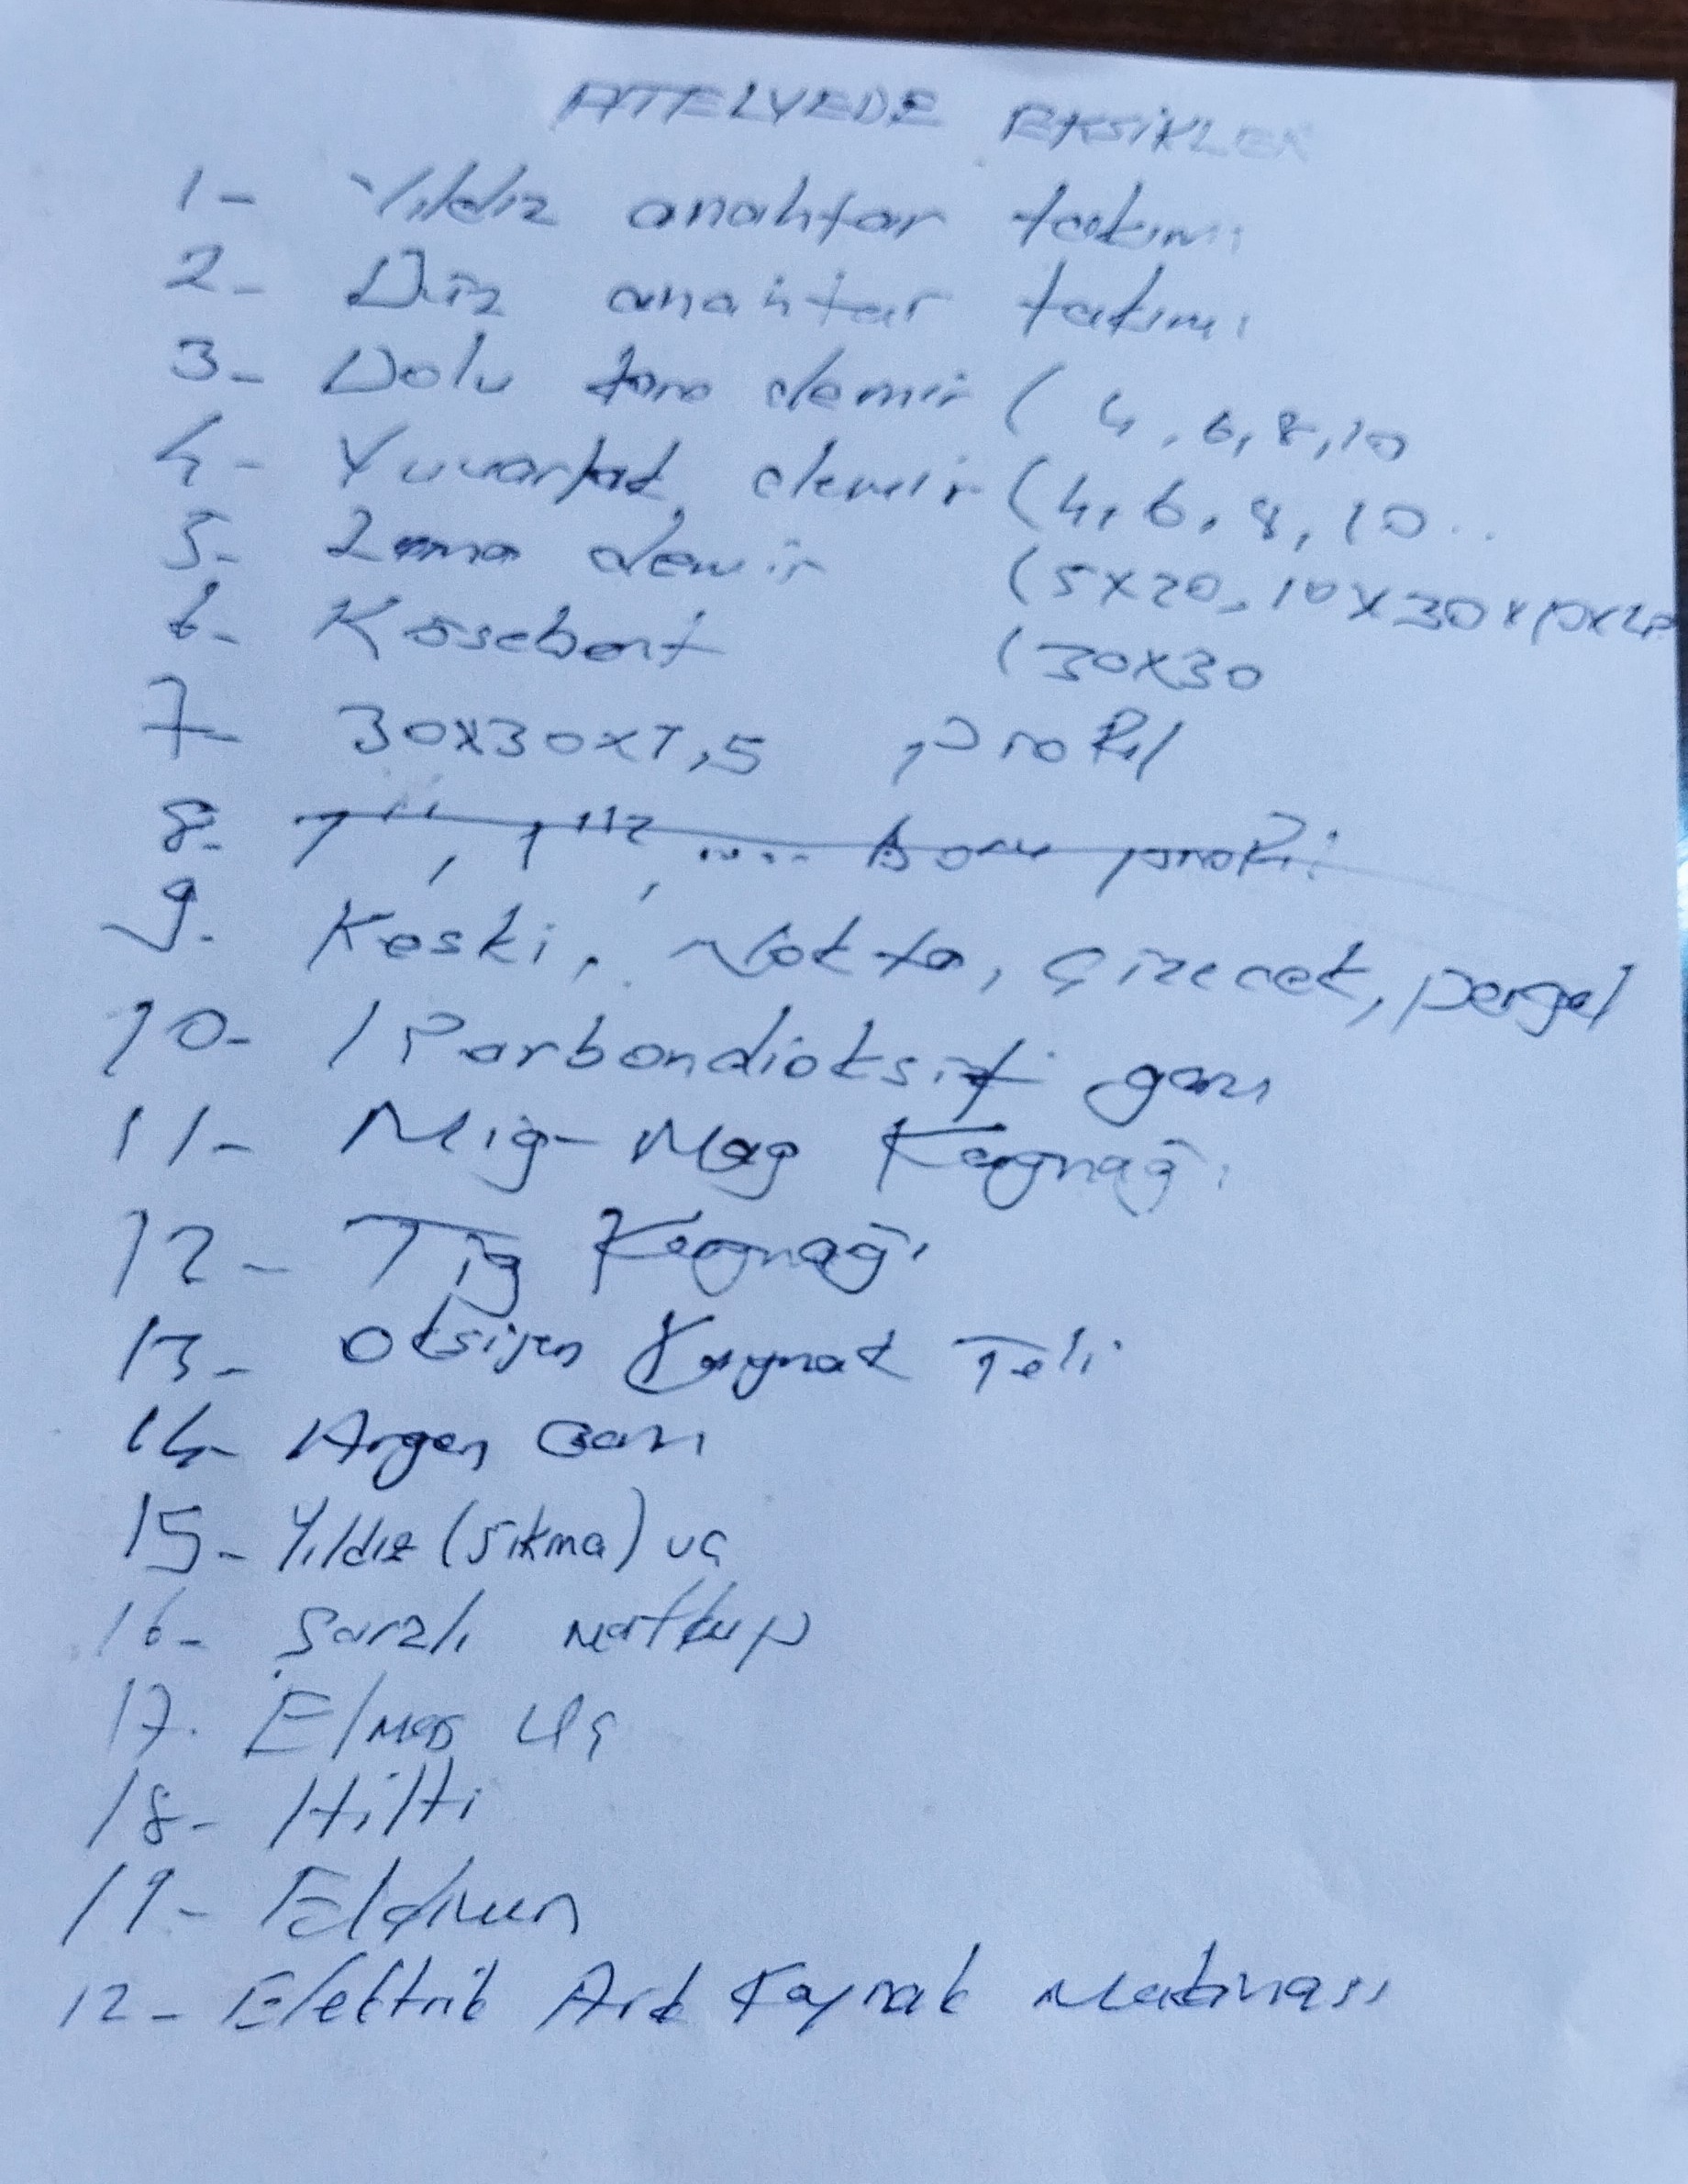 ATELYEDE EKSİKLER
1- Yıldız anahtar takımı
2- Düz anahtar takımı
3- Dolu kare demir ( 4, 6, 8, 10
4- Yuvarlak demir (4, 6, 8, 10..
5- Lama demir (5x20, 10x30x10x20
6- Köşebent (30x30
7- 30x30x1,5 profil
8- 1", 1"1/2, .... boru profil
9. Keski, Nokta, Çizecek, pergel
10- Karbondioksit gazı
11- Mig-Mag Kaynağı
12- Tig Kaynağı
13- Oksijen Kaynak Teli
14- Argon Gazı
15- Yıldız (Sıkma) uç
16- Şarzlı matkap
17. Elmas Uç
18- Hilti
19- Eldiven
12- Elektrik Ark Kaynak Makinası